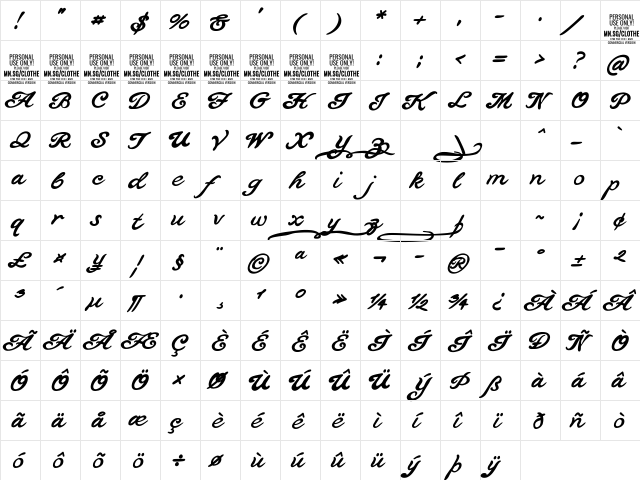 ! " # $ % & ' ( ) * + , - . / PERSONAL USE ONLY! MN.SG/CLOTHE
PERSONAL USE ONLY! MN.SG/CLOTHE PERSONAL USE ONLY! MN.SG/CLOTHE PERSONAL USE ONLY! MN.SG/CLOTHE PERSONAL USE ONLY! MN.SG/CLOTHE PERSONAL USE ONLY! MN.SG/CLOTHE PERSONAL USE ONLY! MN.SG/CLOTHE PERSONAL USE ONLY! MN.SG/CLOTHE PERSONAL USE ONLY! MN.SG/CLOTHE PERSONAL USE ONLY! MN.SG/CLOTHE : ; < = > ? @
A B C D E F G H I J K L M N O P
Q R S T U V W X Y Z \ ^ _ `
a b c d e f g h i j k l m n o p
q r s t u v w x y z | ~ ¡ ¢
£ ¤ ¥ ¦ § ¨ © ª « ¬ - ® ¯ ° ± ²
³ ´ µ ¶ · ¸ ¹ º » ¼ ½ ¾ ¿ À Á Â
Ã Ä Å Æ Ç È É Ê Ë Ì Í Î Ï Ð Ñ Ò
Ó Ô Õ Ö × Ø Ù Ú Û Ü Ý Þ ß à á â
ã ä å æ ç è é ê ë ì í î ï ð ñ ò
ó ô õ ö ÷ ø ù ú û ü ý þ ÿ